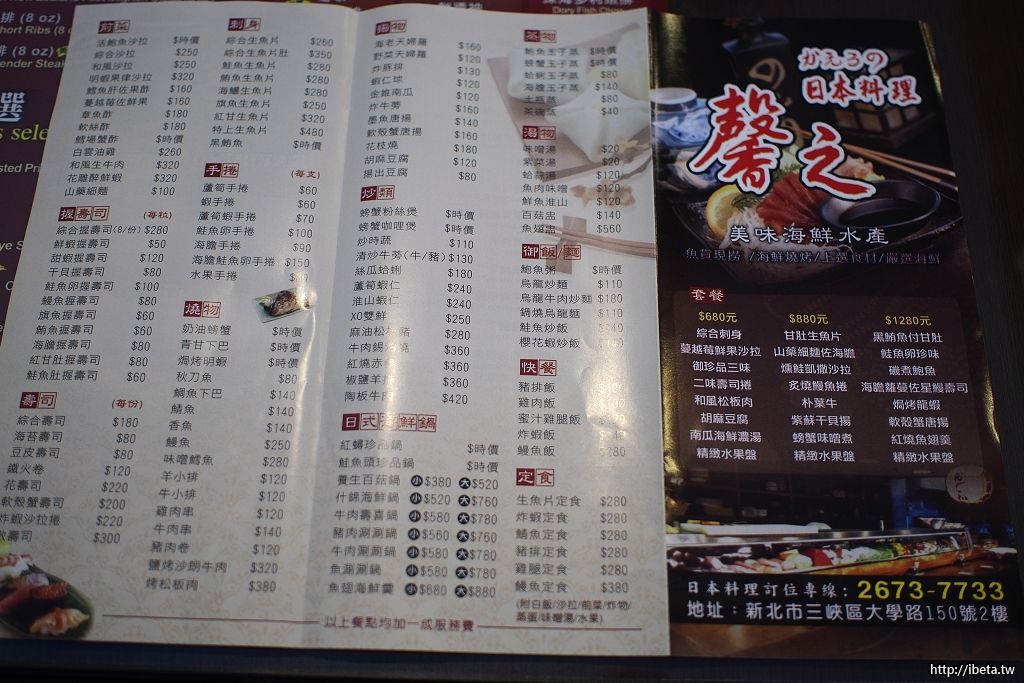 排 (8 oz)
hort Ribs (8 o
(8 oz)
ender Steak
選
s sele
Dory Fish Cho
前菜
活鮑魚沙拉 $時價
綜合沙拉 $250
和風沙拉 $250
明蝦果律沙拉 $320
鱈魚肝佐果醋 $160
蔓越莓佐鮮果 $160
章魚酢 $180
軟絲酢 $180
鱈場蟹酢 $時價
白雲油雞 $260
和風生牛肉 $320
花雕醉鮮蝦 $320
山藥細麵 $100
握壽司 (每粒)
綜合握壽司(8/份) $280
鮮蝦握壽司 $50
甜蝦握壽司 $120
干貝握壽司 $80
鮭魚卵握壽司 $100
鰻魚握壽司 $80
旗魚握壽司 $60
鮪魚握壽司 $60
海膽握壽司 $120
紅甘肚握壽司 $80
鮭魚肚握壽司 $60
壽司 (每份)
綜合壽司 $180
海苔壽司 $80
豆皮壽司 $80
鐵火卷 $120
花壽司 $220
軟殼蟹壽司 $200
炸蝦沙拉捲 $220
壽司 $300
刺身
綜合生魚片 $260
綜合生魚片肚 $350
鮭魚生魚片 $280
鮪魚生魚片 $280
海鱺生魚片 $280
旗魚生魚片 $250
紅甘生魚片 $320
特上生魚片 $480
黑鮪魚 $時價
手捲 (每支)
蘆筍手捲 $60
蝦手捲 $60
蘆筍蝦手捲 $70
鮭魚卵手捲 $100
海膽手捲 $90
海膽鮭魚卵手捲 $150
水果手捲
燒物
奶油螃蟹 $時價
青甘下巴 $時價
焗烤明蝦 $時價
秋刀魚 $80
鯛魚下巴 $140
鯖魚 $140
香魚 $140
鰻魚 $250
味噌鱈魚 $280
羊小排 $120
牛小排 $120
雞肉串 $120
牛肉串 $140
豬肉卷 $120
鹽烤沙朗牛肉 $320
烤松板肉 $380
揚物
海老天婦羅 $160
野菜天婦羅 $120
炸豚排 $130
蝦仁球 $120
金錐南瓜 $120
炸牛蒡 $160
墨魚唐揚 $140
軟殼蟹唐揚 $160
花枝燒 $180
胡麻豆腐 $120
揚出豆腐 $80
炒類
螃蟹粉絲煲 $時價
螃蟹咖哩煲 $時價
炒時蔬 $110
清炒牛蒡(牛/豬) $130
絲瓜蛤蜊 $180
蘆筍蝦仁 $240
淮山蝦仁 $240
XO雙鮮 $250
麻油松板豬 $280
牛肉錫 燒 $360
紅燒赤 $360
椒鹽羊 $360
陶板牛肉 $420
日式海鮮鍋
紅蟳珍品鍋 $時價
鮭魚頭珍品鍋 $時價
養生百菇鍋 小 $380 大 $520
什錦海鮮鍋 小 $520 大 $760
牛肉壽喜鍋 小 $580 大 $780
豬肉涮涮鍋 小 $560 大 $760
牛肉涮涮鍋 小 $580 大 $780
魚涮涮鍋 小 $580 大 $780
魚翅海鮮羹 小 $680 大 $880
以上餐點均加一成服務費
蒸物
鮑魚玉子蒸 $時價
螃蟹玉子蒸 $時價
蛤蜊玉子蒸 $80
海膽玉子蒸 $140
土瓶蒸 $80
茶碗蒸 $40
湯物
味噌湯 $20
紫菜湯 $20
蛤蒜湯
魚肉味噌 $120
鮮魚淮山 $120
百菇盅 $140
魚翅盅 $560
御飯/麵
鮑魚粥 $時價
烏龍炒麵 $110
烏龍牛肉炒麵 $180
鍋燒烏龍麵 $110
鮭魚炒飯
櫻花蝦炒飯
快餐
豬排飯
雞肉飯
蜜汁雞腿飯
炸蝦飯
鰻魚飯 $280
定食
生魚片定食 $280
炸蝦定食 $280
鯖魚定食 $280
豬排定食 $280
雞腿定食 $280
鰻魚定食 $380
(附白飯/沙拉/前菜/炸物/
蒸蛋/味噌湯/水果)
かえるの
日本料理
馨之
美味海鮮水產
魚貨現撈 /海鮮燒烤/上選食材/嚴選海鮮
套餐
$680元
綜合刺身
蔓越莓鮮果沙拉
御珍品三味
二味壽司捲
和風松板肉
胡麻豆腐
南瓜海鮮濃湯
精緻水果盤
$880元
甘肚生魚片
山藥細麵佐海膽
燻鮭凱撒沙拉
炙燒鰻魚捲
朴葉牛
紫蘇干貝揚
螃蟹味噌煮
精緻水果盤
$1280元
黑鮪魚付甘肚
鮭魚卵珍味
磯煮鮑魚
海膽蘿蔓佐星鰻壽司
焗烤龍蝦
軟殼蟹唐揚
紅燒魚翅羹
精緻水果盤
日本料理訂位專線：2673-7733
地址：新北市三峽區大學路150號2樓
http://ibeta.tw